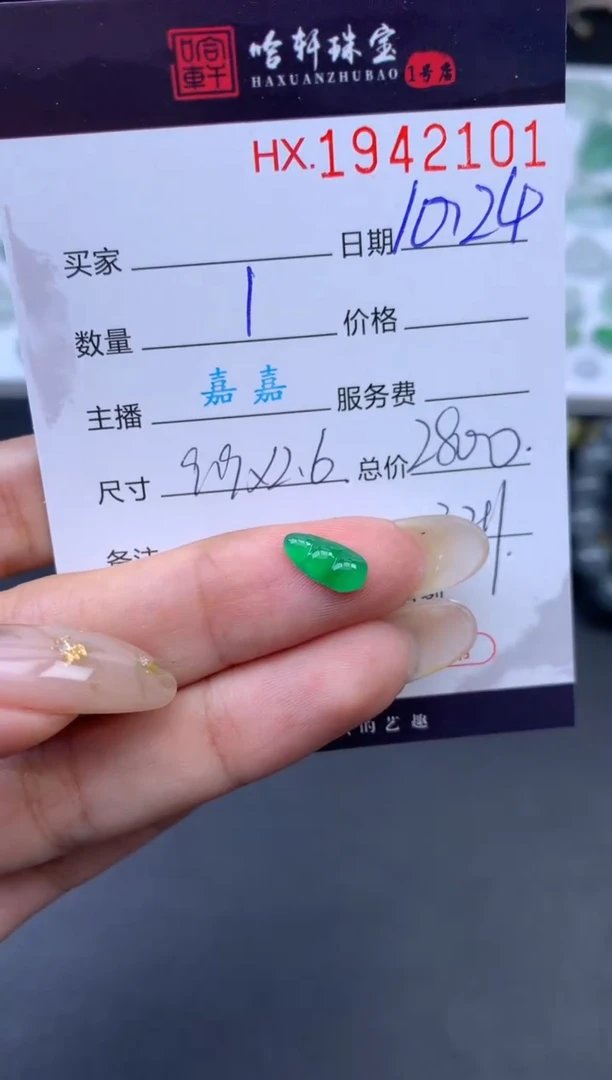 哈軒
哈轩珠宝
HAXUANZHUBAO
1号店
HX.1942101
买家 日期 10.24
数量 1 价格
主播 嘉嘉 服务费
尺寸 总价 2800.
备注
的艺趣